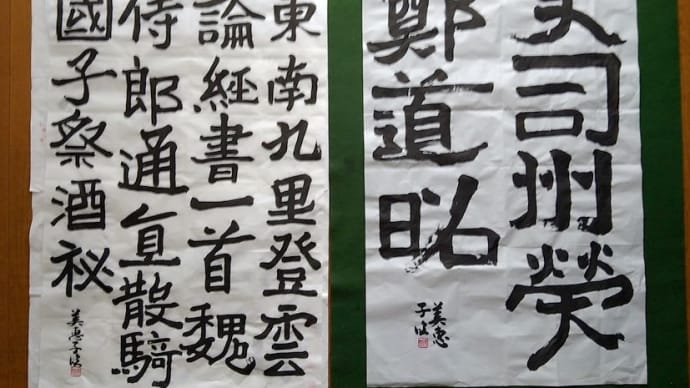 司州榮
鄭道昭
美恵
子臨
東南九里登雲
論経書一首魏
侍郎通直散騎
國子祭酒祕
美恵子臨